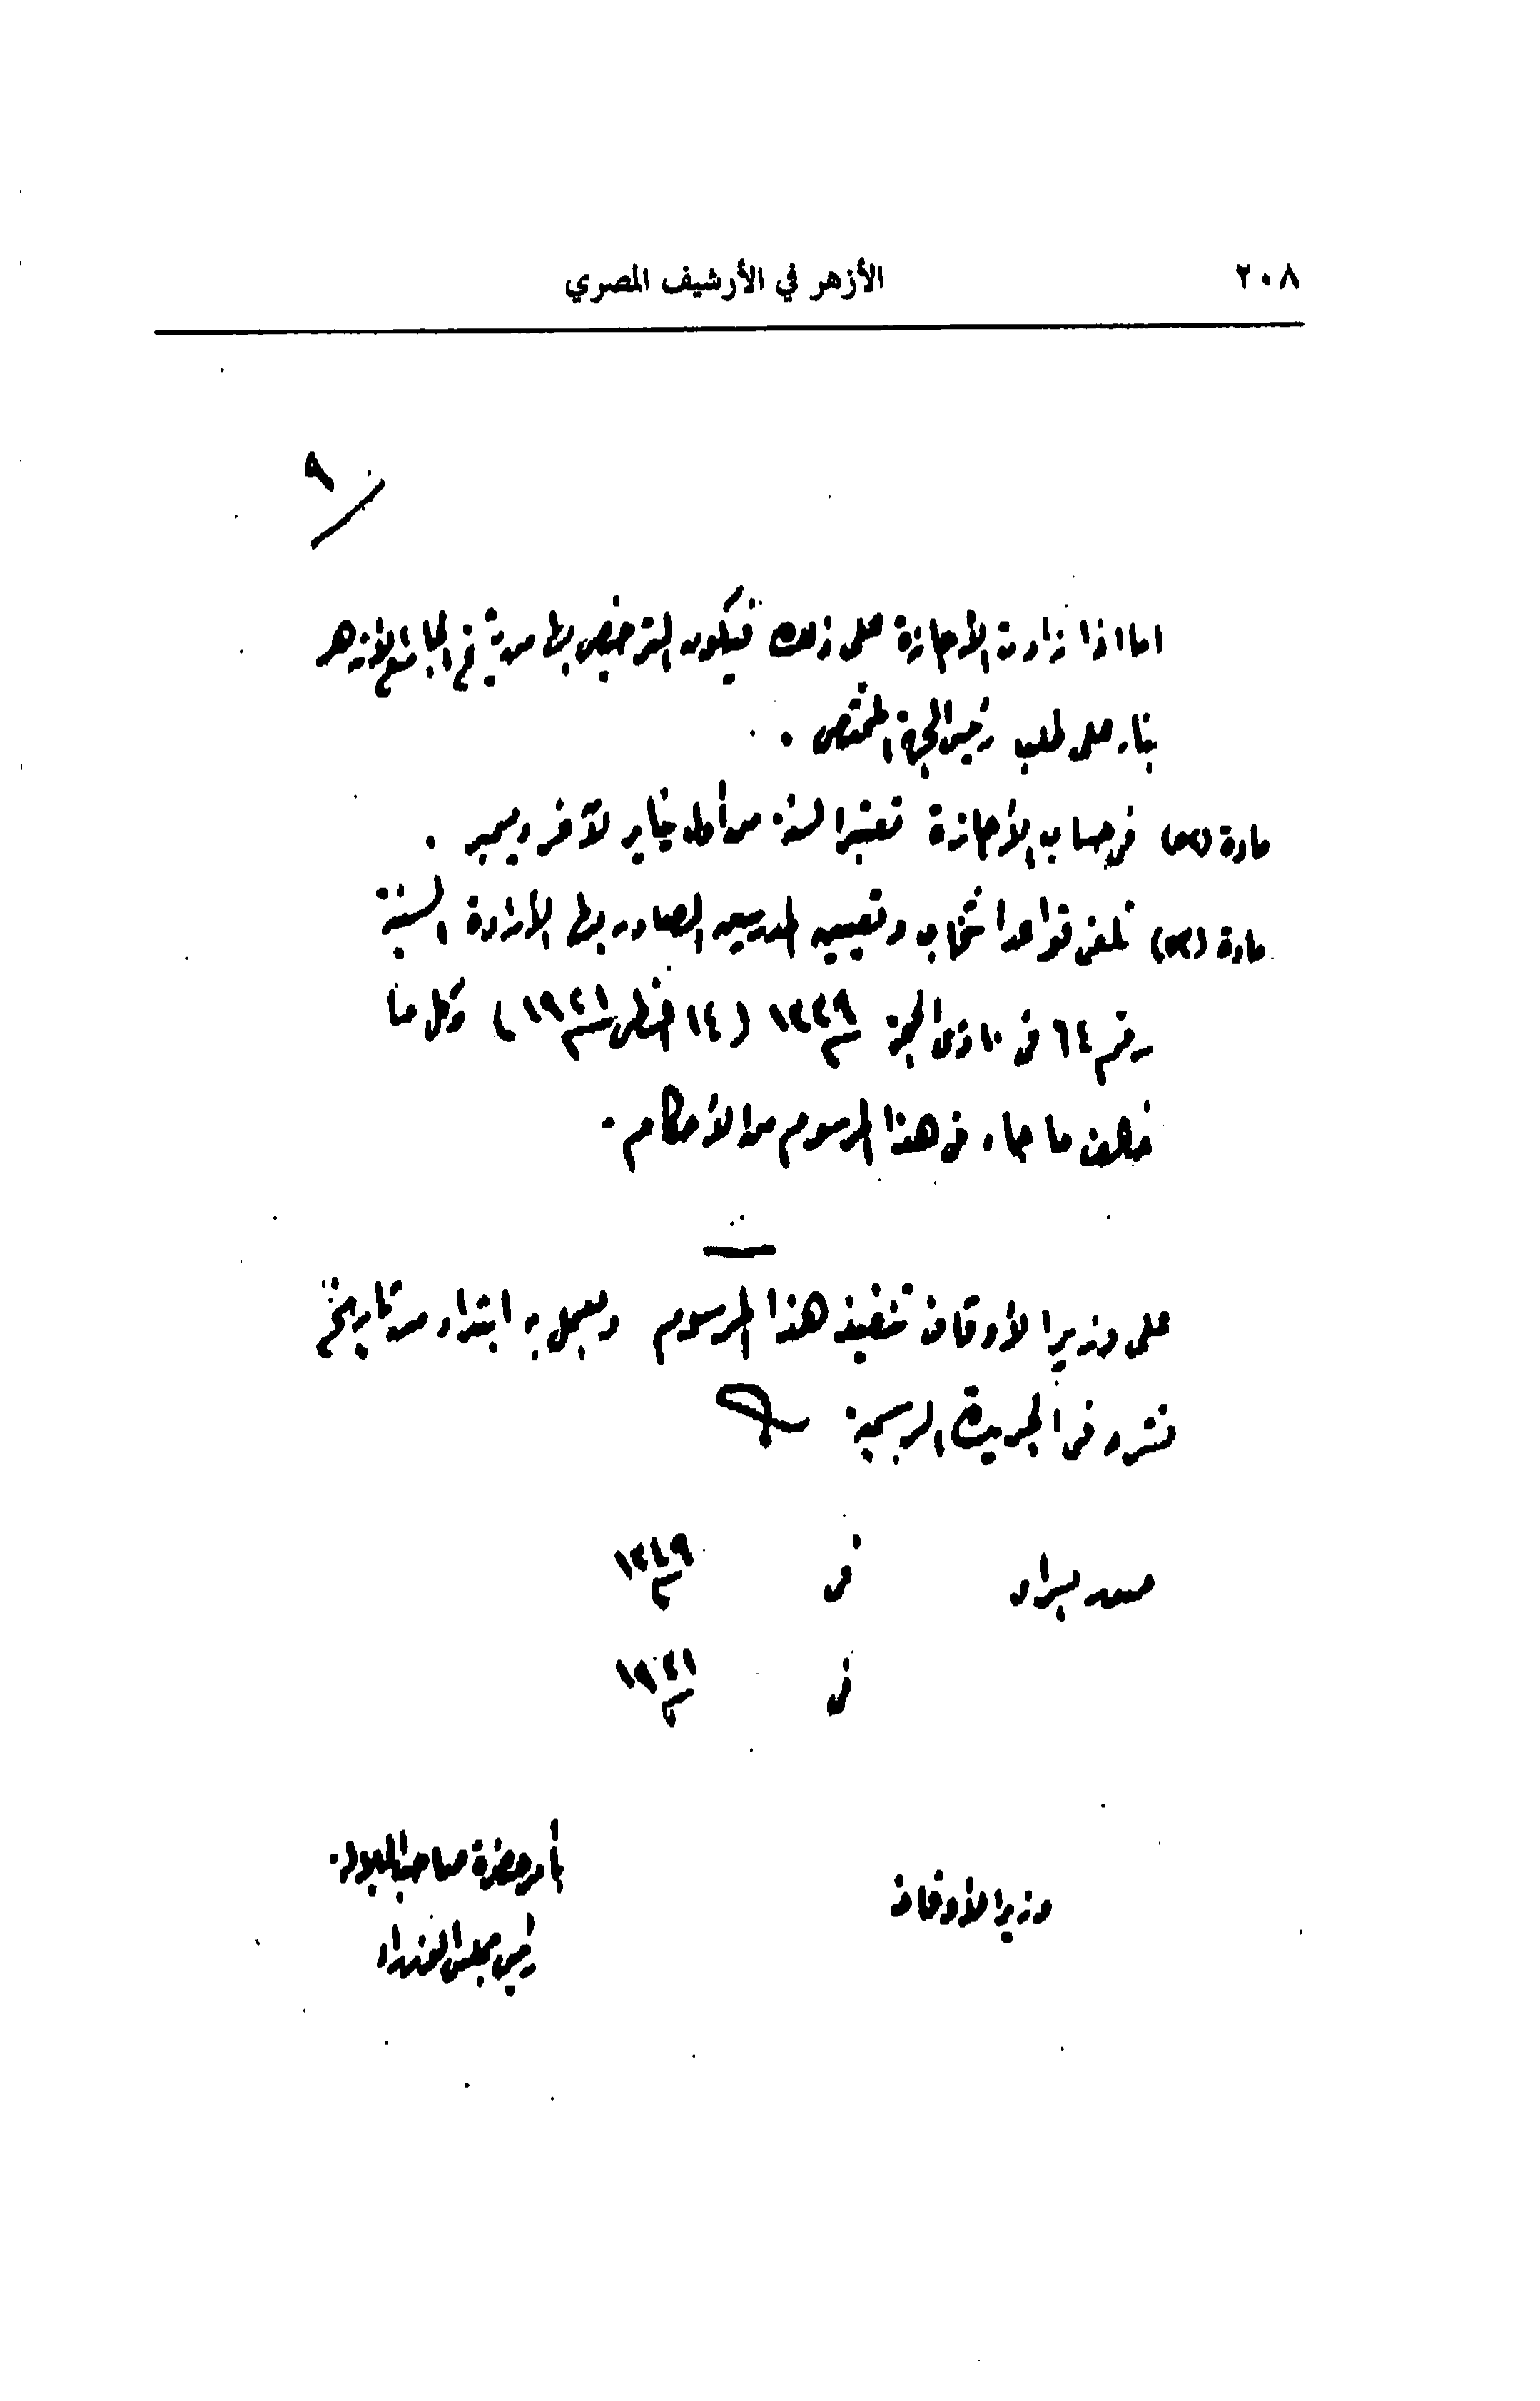 ٢٠٨
الأزهر في الأرشيف المصري
٩
اما اذا زادت الأجازة على ذلك فيكون الترخيص بها من شيخ الجامع الأزهر
بناء على طلب رئيس الجهة المختص .
مادة فى حساب الأجازة تعتبر السنة من أول يناير لآخر ديسمبر .
مادة تلغى قواعد انتخاب وتعيين المدرسين الصادر بها الأرادة السنية
رقم ٦٤ فى ذى الحجة سنة ١٣٣٩ (١٤ أغسطس سنة ١٩٢١) وكل ما
خالف ما جاء فى هذا المرسوم من الأحكام .
على وزير الأوقاف تنفيذ هذا المرسوم ويعمل به ابتداء من تاريخ
نشره فى الجريدة الرسمية
صدر بسراى فى سنة ١٣٤٩
فى سنة ١٩٣١
بأمر حضرة صاحب الجلالة
وزير الأوقاف
رئيس مجلس الوزراء